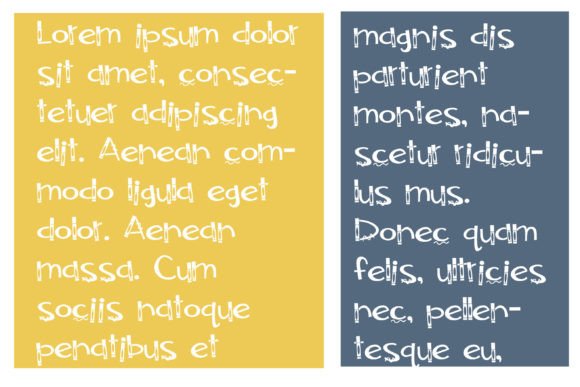 Lorem ipsum dolor
sit amet, consec-
tetuer adipiscing
elit. Aenean com-
modo ligula eget
dolor. Aenean
massa. Cum
sociis natoque
penatibus et
magnis dis
parturient
montes, na-
scetur ridicu-
lus mus.
Donec quam
felis, ultricies
nec, pellen-
tesque eu,